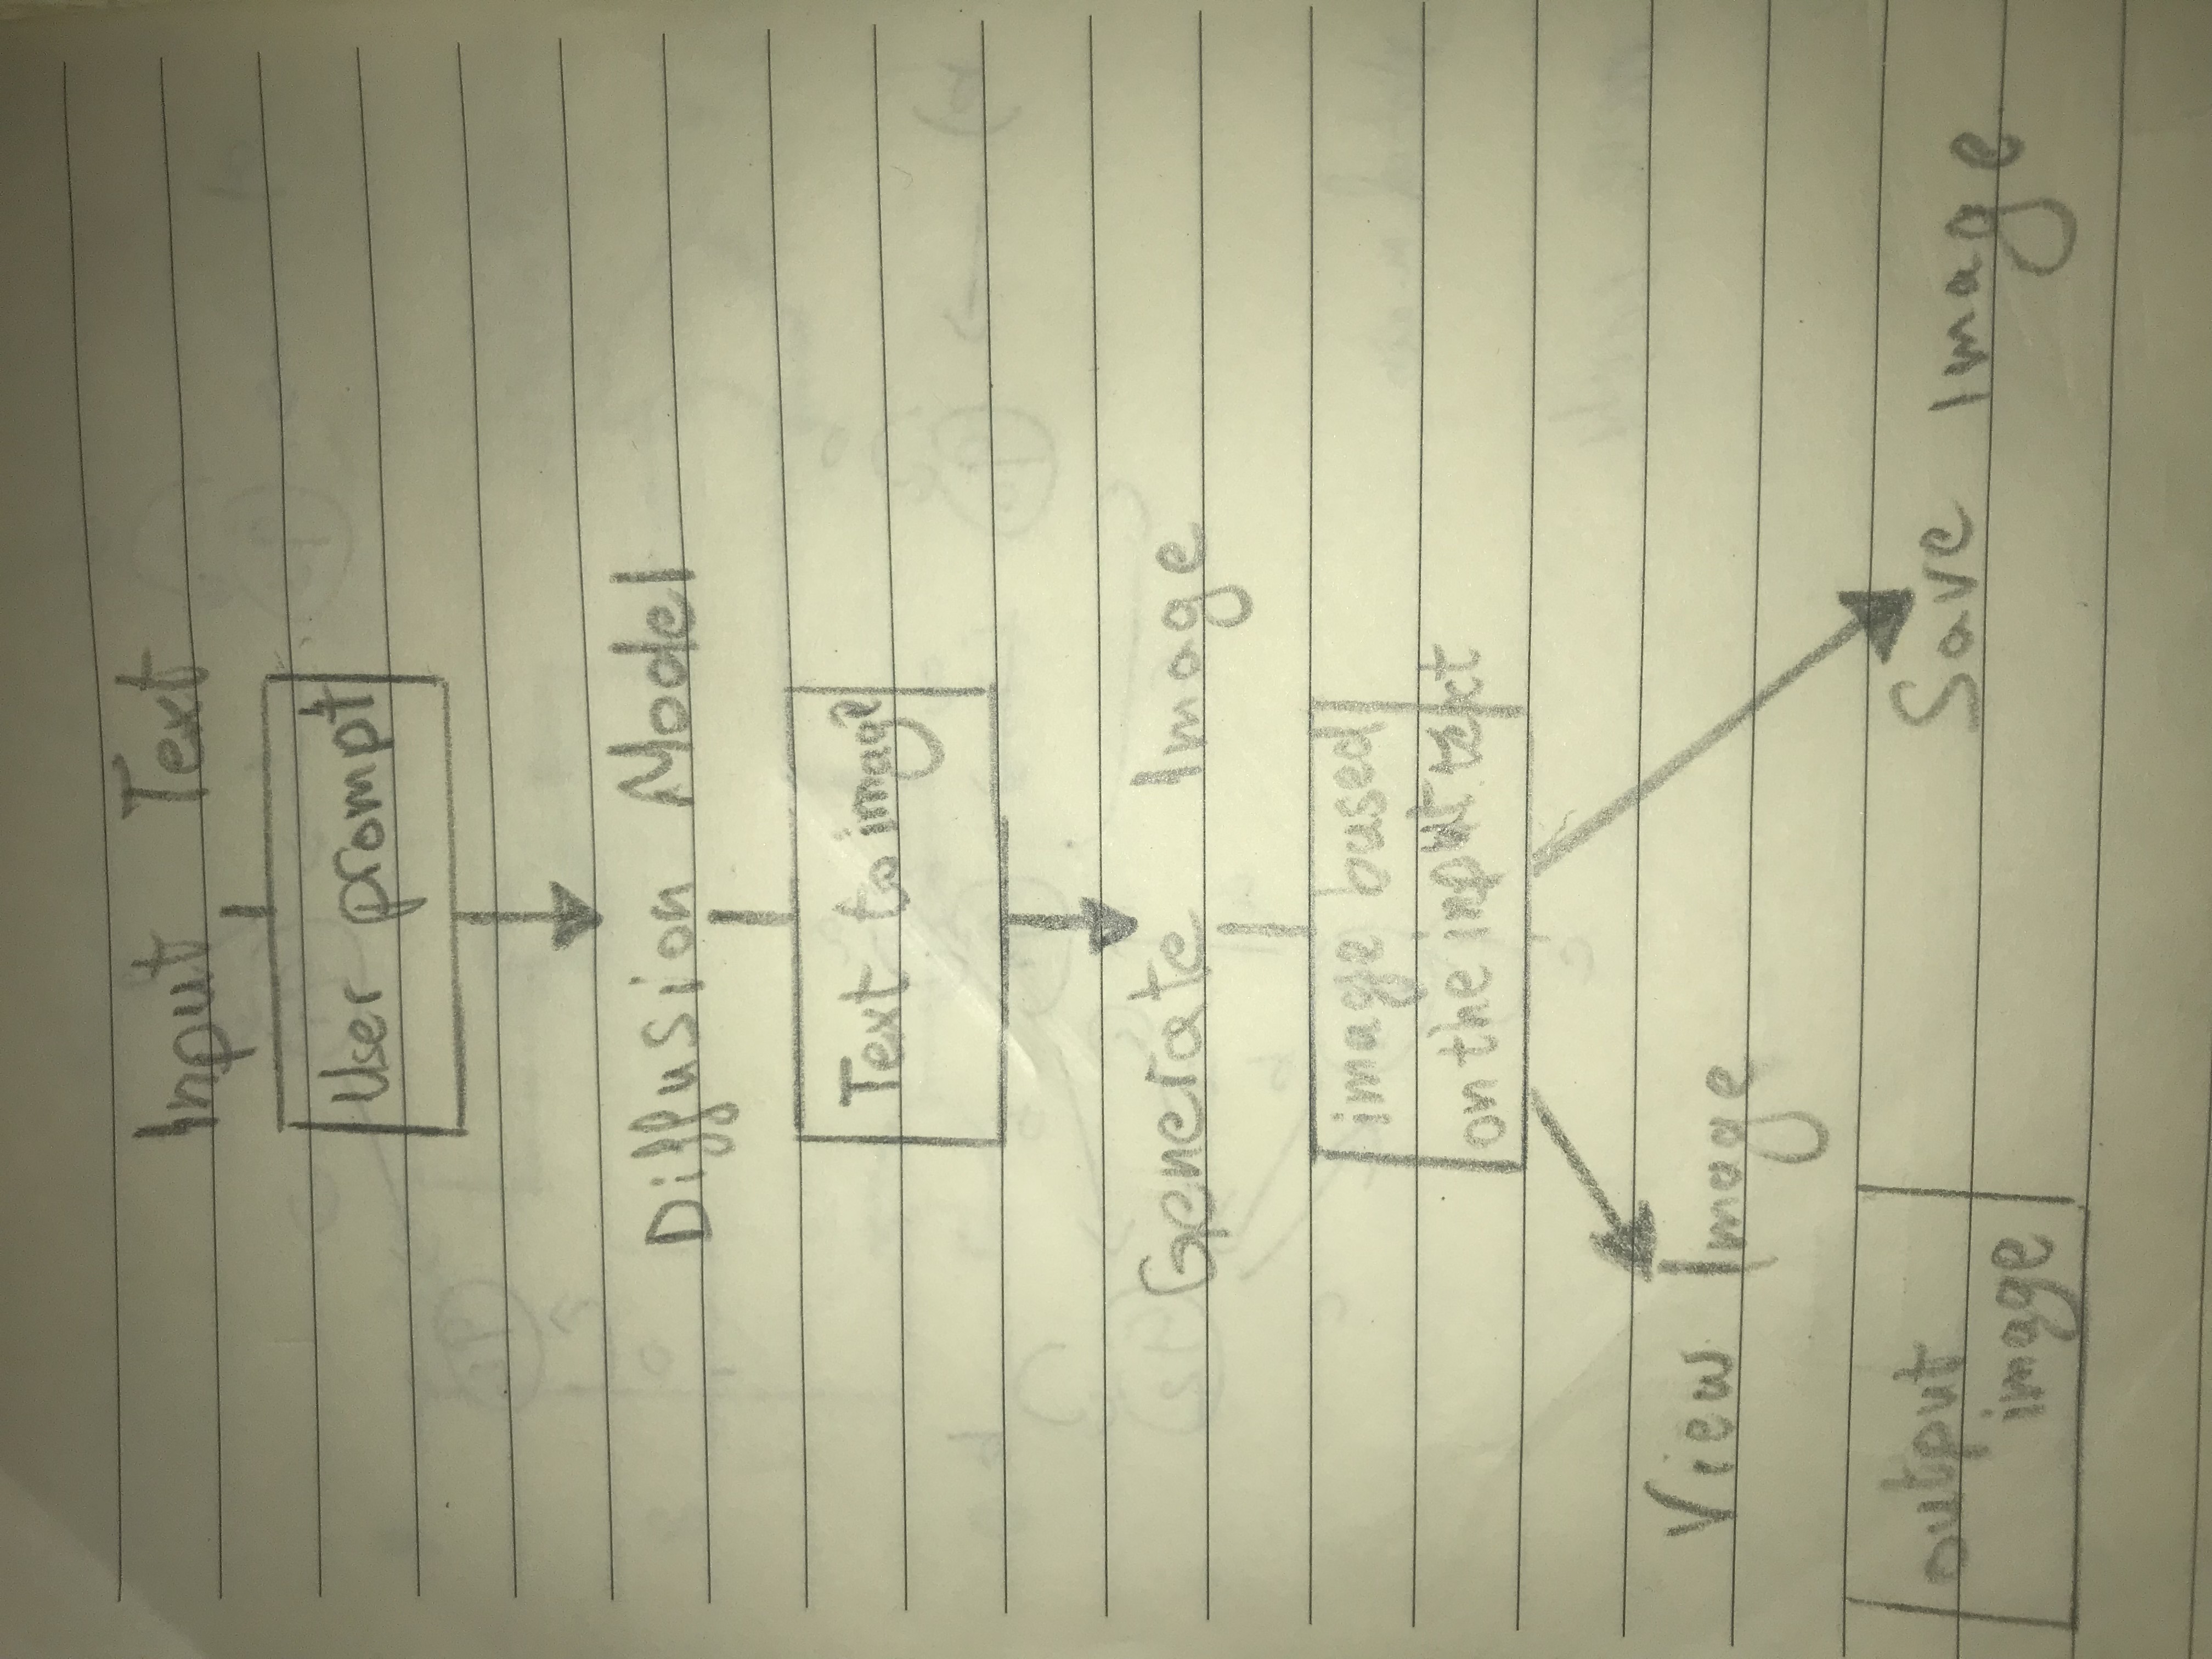 Input Text
User prompt
Diffusion Model
Text to image
Generate Image
image based
on the input text
View Image
output
image
Save Image